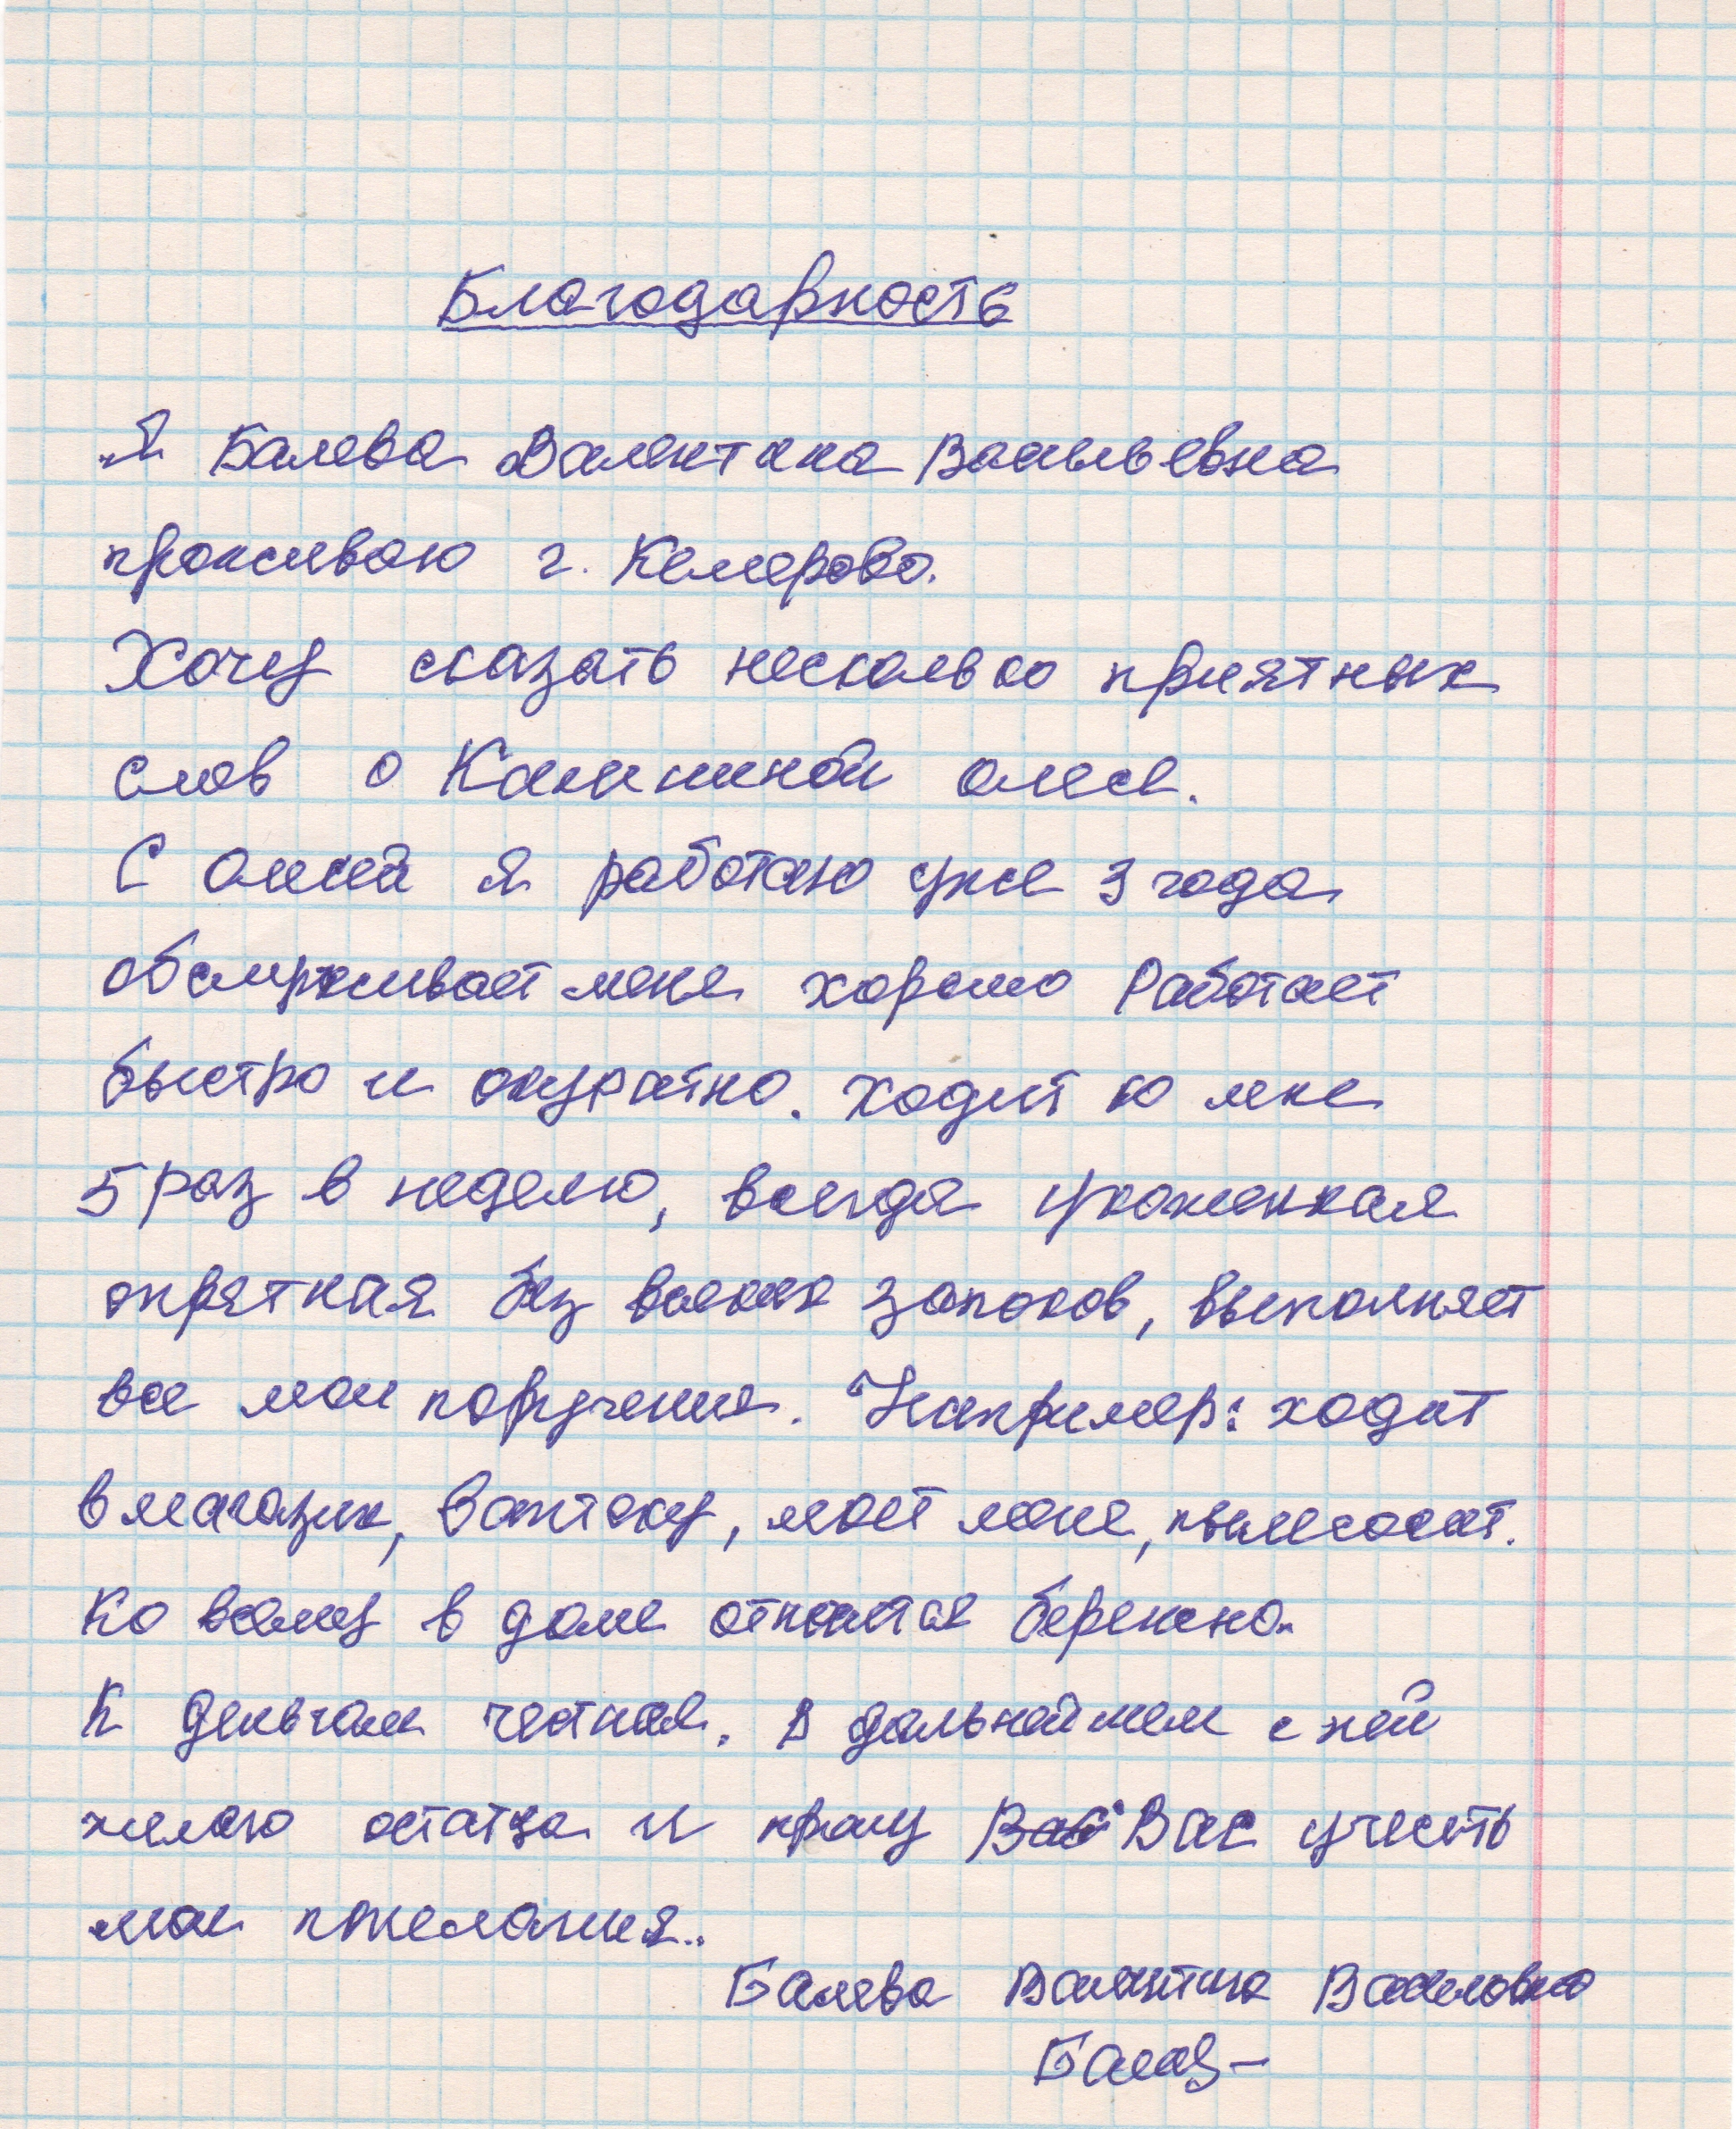 Благодарность
Я Балева Валентина Васильевна
проживаю г. Кемерово.
Хочу сказать несколько приятных
слов о Калининой олесе.
С олесей я работаю уже 3 года
обслуживает меня хорошо Работает
быстро и акуратно. ходит ко мне
5 раз в неделю, всегда ухоженная
опрятная без всяких запахов, выполняет
все мои поручения. Например: ходит
в магазин, в аптеку, моет полы, пылесосит.
Ко всему в доме относится бережно.
К деньгам честная. В дальнейшем с ней
желаю остатся и прошу Вас Вас учесть
мои пожелания..
Балева Валентина Васильевна